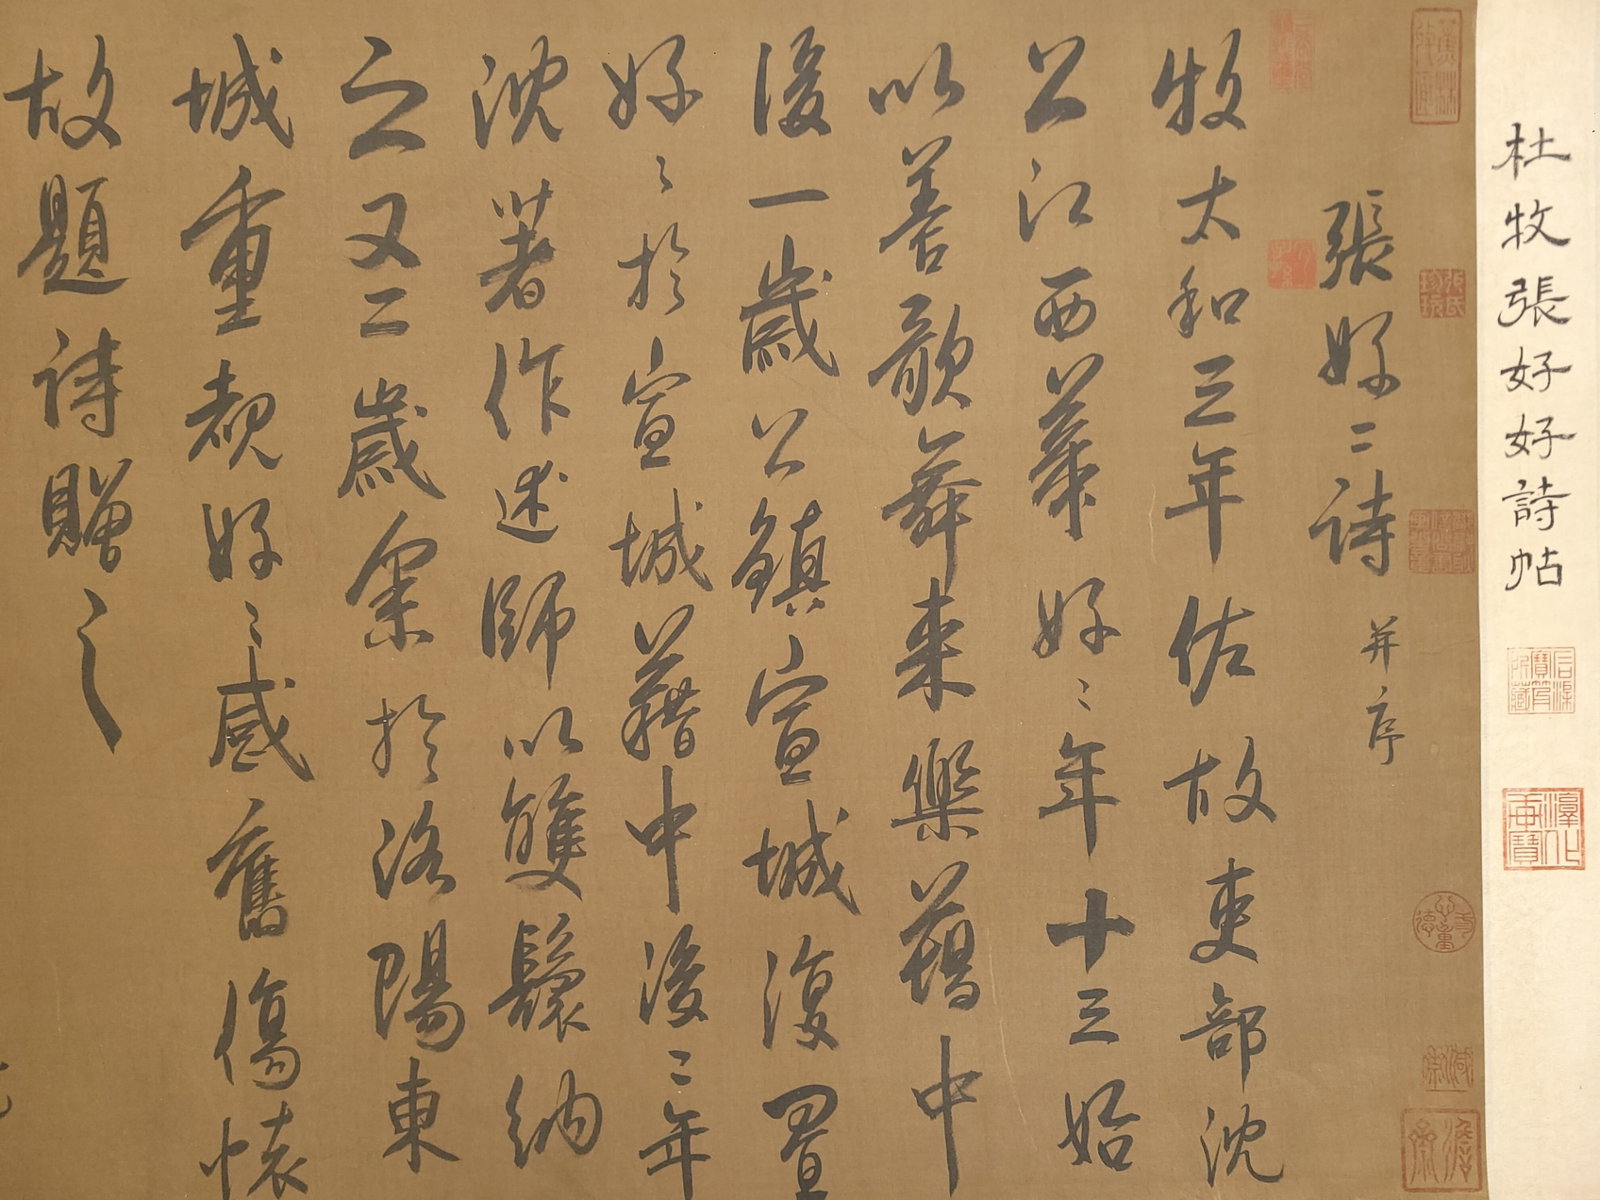 杜牧張好好詩帖
張好〻詩 并序
牧太和三年佐故吏部沈
公江西幕好〻年十三始
以善歌舞來樂籍中
後一歲公鎮宣城復置
好〻於宣城籍中後二年
沈著作述師以雙鬟納
之又二歲余於洛陽東
城重覩好〻感舊傷懷
故題詩贈之
張氏珍玩